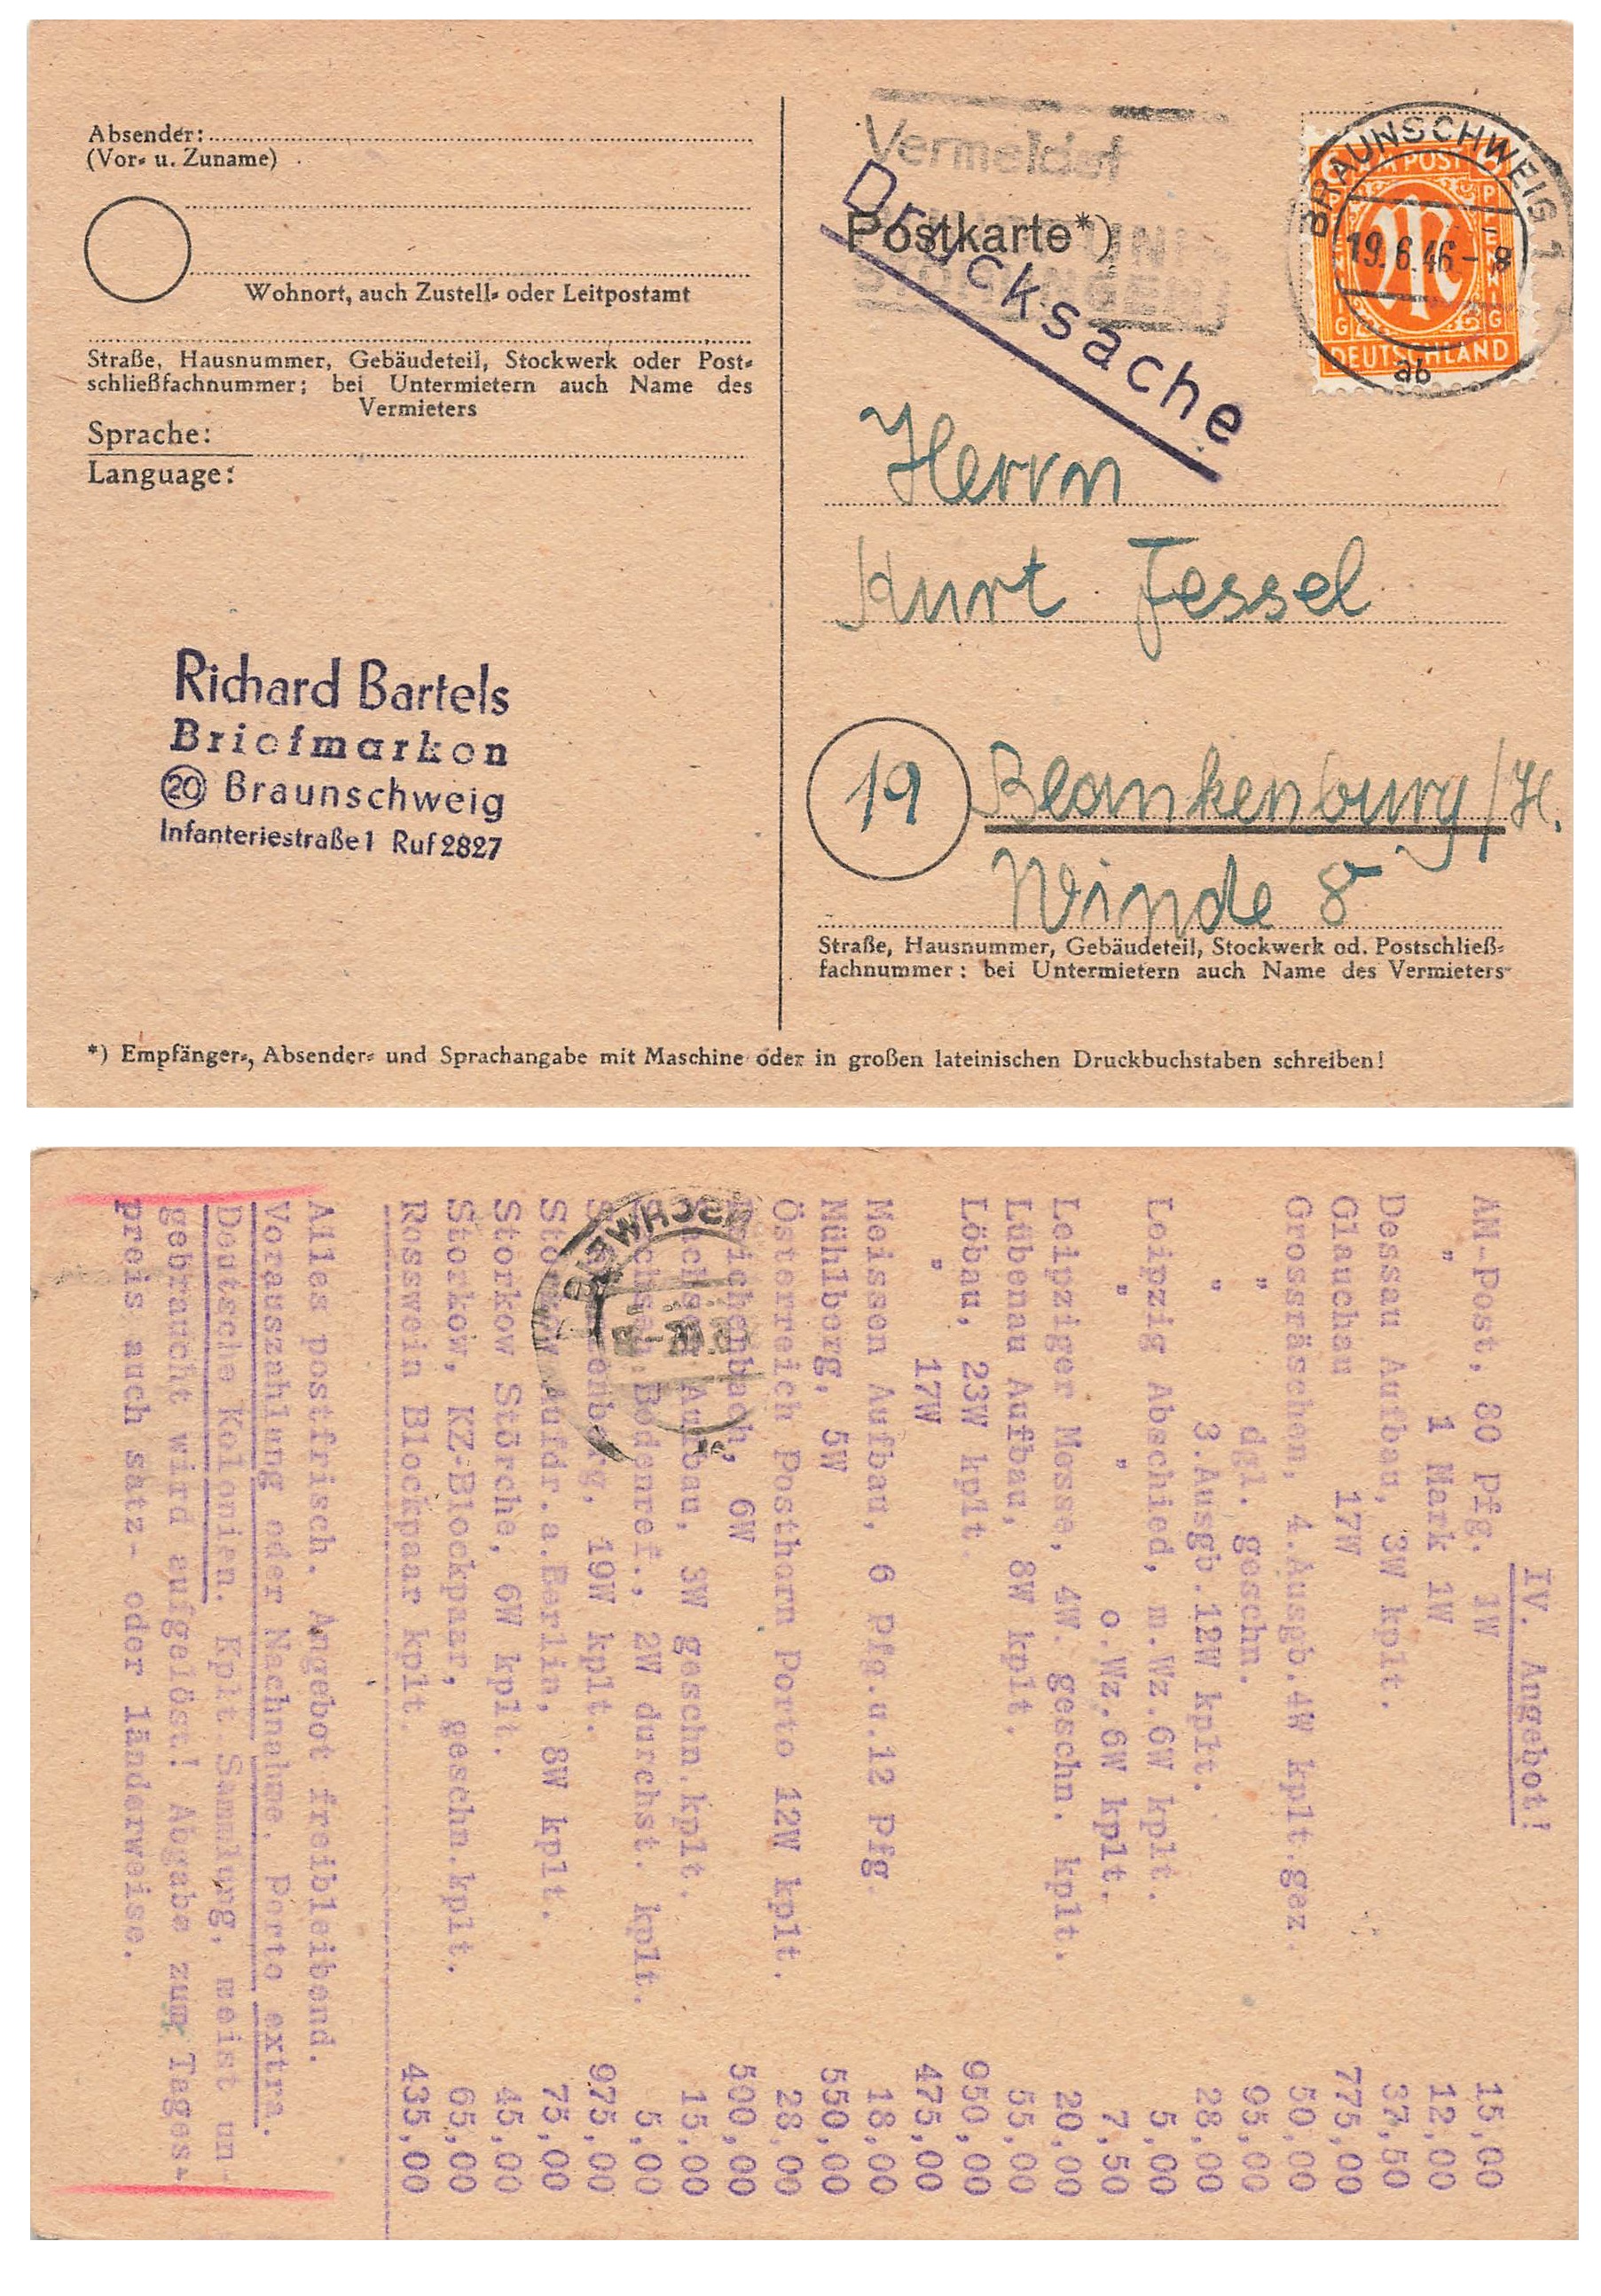 Absender:
(Vor- u. Zuname)
Wohnort, auch Zustell- oder Leitpostamt
Straße, Hausnummer, Gebäudeteil, Stockwerk oder Post-
schließfachnummer; bei Untermietern auch Name des
Vermieters
Sprache:
Language:
Richard Bartels
Briefmarken
20 Braunschweig
Infanteriestraße 1 Ruf 2827
Vermeidet
Postkarte*)
Drucksache
BRAUNSCHWEIG 1
19.6.46-8
ab
AM POST
PFENNIG
DEUTSCHLAND
Herrn
Kurt Fessel
19 Blankenburg/H.
Winde 8
Straße, Hausnummer, Gebäudeteil, Stockwerk od. Postschließ-
fachnummer: bei Untermietern auch Name des Vermieters
*) Empfänger-, Absender- und Sprachangabe mit Maschine oder in großen lateinischen Druckbuchstaben schreiben!
IV. Angebot!
AM-Post, 80 Pfg. 1W 15,00
" 1 Mark 1W 12,00
Dessau Aufbau, 3W kplt. 37,50
Glauchau 17W 775,00
Grossräschen, 4.Ausgb.4W kplt.gez. 50,00
" dgl. geschn. 95,00
" 3.Ausgb.12W kplt. 28,00
Leipzig Abschied, m.Wz.6W kplt. 5,00
" " o.Wz.6W kplt. 7,50
Leipziger Messe, 4W. geschn. kplt. 20,00
Lübenau Aufbau, 8W kplt. 55,00
Löbau, 23W kplt. 950,00
" 17W 475,00
Meissen Aufbau, 6 Pfg.u.12 Pfg. 18,00
Mühlberg, 5W 550,00
Österreich Posthorn Porto 12W kplt. 28,00
Reichenbach, 6W 500,00
Aufbau, 3W geschn.kplt. 15,00
Bodenref., 2W durchst. kplt. 5,00
19W kplt. 975,00
Storkow Aufdr.a.Berlin, 8W kplt. 75,00
Storkow Störche, 6W kplt. 45,00
Storkow, KZ-Blockpaar, geschn.kplt. 65,00
Rosswein Blockpaar kplt. 435,00
Alles postfrisch. Angebot freibleibend.
Vorauszahlung oder Nachnahme. Porto extra.
Deutsche Kolonien. Kplt Sammlung, meist un-
gebraucht wird aufgelöst! Abgabe zum Tages-
preis auch satz- oder länderweise.